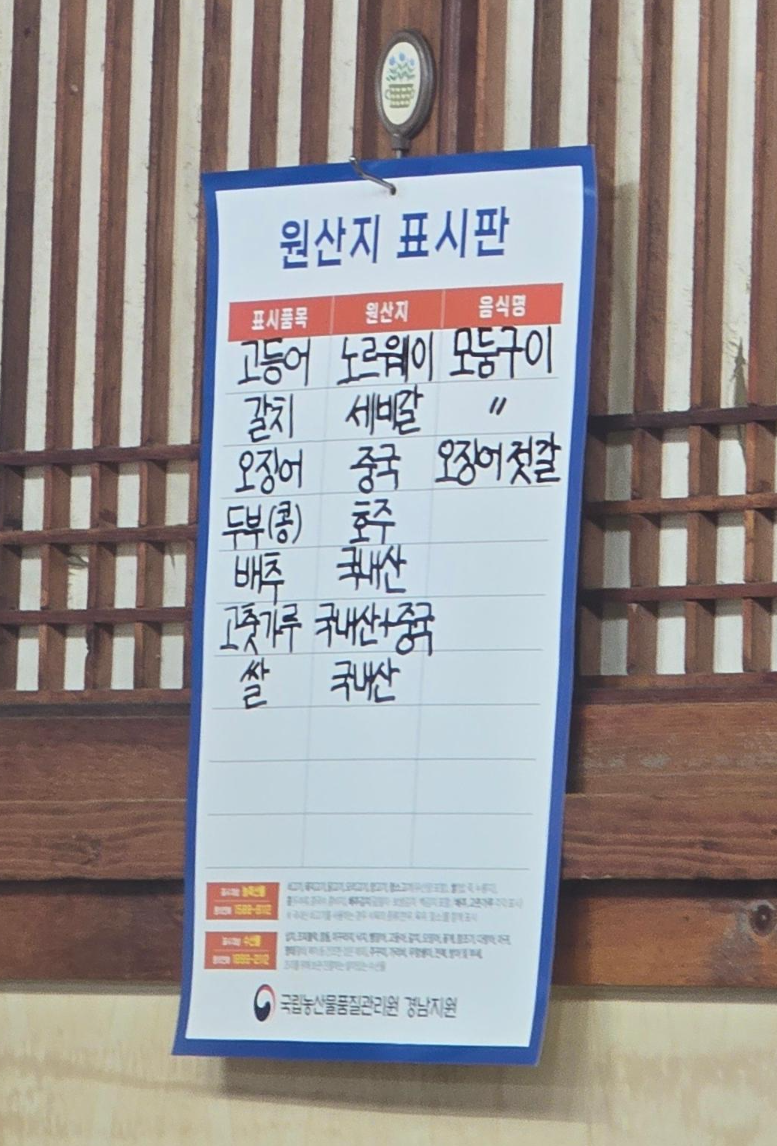 원산지 표시판
표시품목 원산지 음식명
고등어 노르웨이 모둠구이
갈치 세비갈 〃
오징어 중국 오징어젓갈
두부(콩) 호주
배추 국내산
고춧가루 국내산+중국
쌀 국내산
농축산물
1588-8112
수산물
1899-2112
국립농산물품질관리원 경남지원